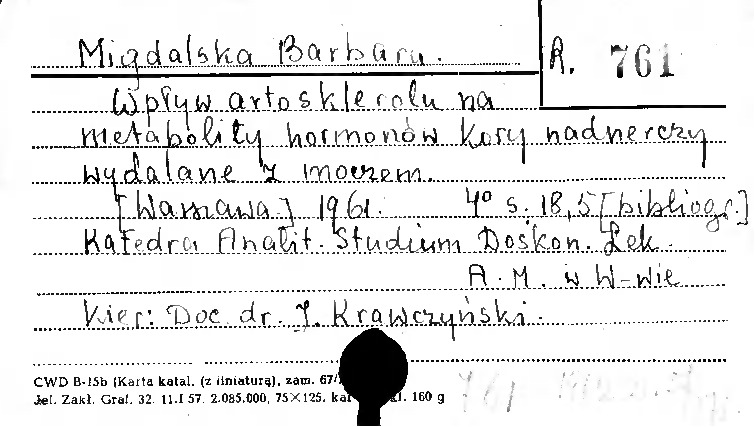 Migdalska Barbara.
R. 761
Wpływ artosklerolu na
metabolity hormonów kory nadnerczy
wydalane z moczem.
[Warszawa] 1961. 4° s. 18,5 [bibliogr.]
Katedra Analit. Studium Doskon. Lek.
A. M. w W-wie
Kier: Doc dr. J. Krawczyński.
CWD B-15b (Karta katal. (z liniaturą), zam. 67/
Jel. Zakł. Graf. 32. 11.I 57. 2.085.000, 75×125. kl. 160 g